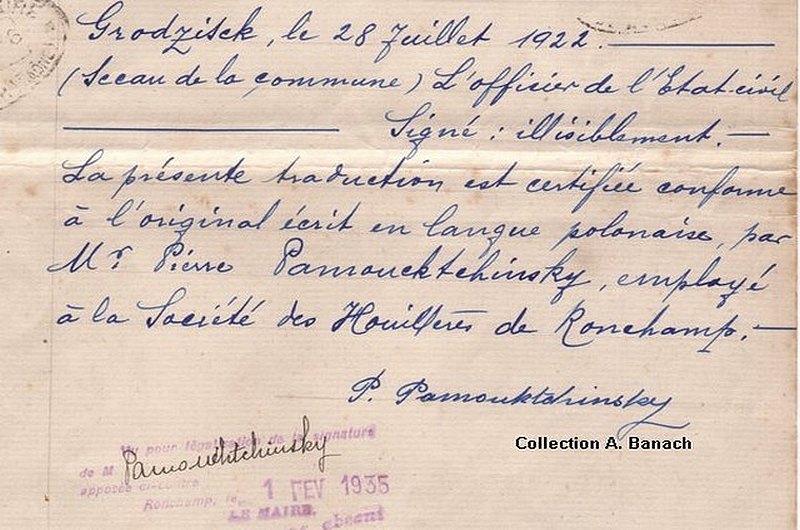 Grodzisck, le 28 Juillet 1922.
(Sceau de la commune) L'officier de l'Etat-civil
Signé : illisiblement. —
La présente traduction est certifiée conforme
à l'original écrit en langue polonaise, par
Mr Pierre Pamoucktchinsky, employé
à la Société des Houillères de Ronchamp. —
P. Pamouktchinsky
Collection A. Banach
Vu pour légalisation de la signature
de M Pamoukhtchinsky
apposée ci-contre
Ronchamp, le 1 FEV 1935
LE MAIRE,
absent